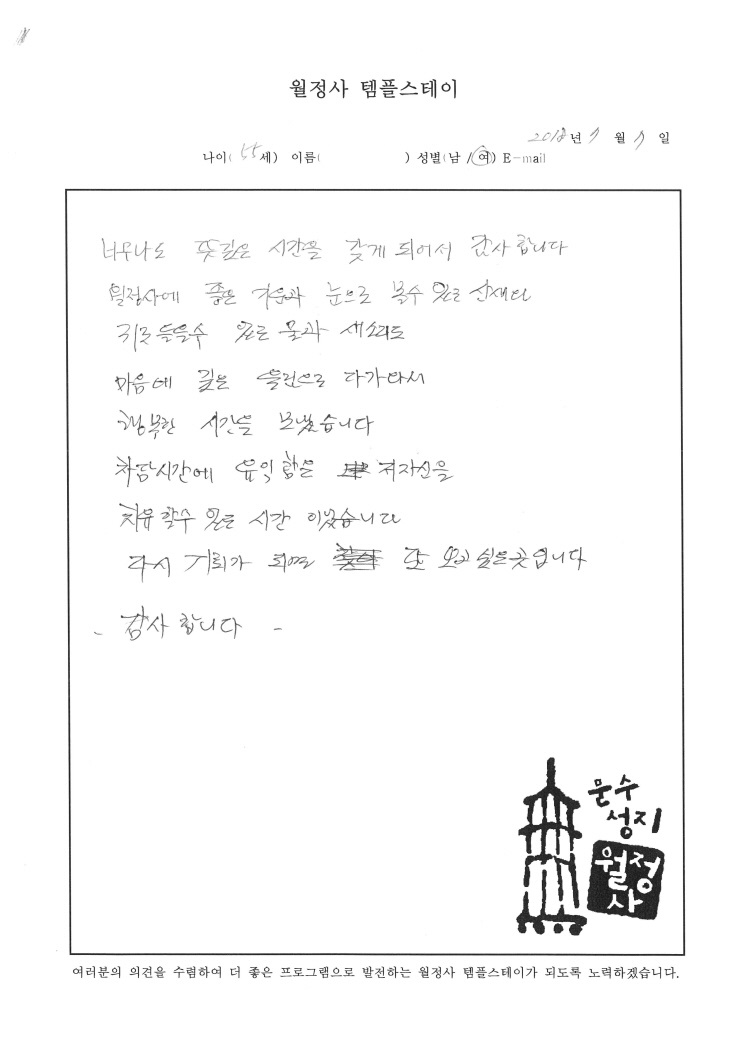 월정사 템플스테이
2018년 7월 7일
나이(55세) 이름( ) 성별(남 /여) E-mail
너무나도 뜻깊은 시간을 갖게 되어서 감사합니다
월정사에 좋은 기운과 눈으로 볼수 있는
귀로 들을수 있는 물과 새소리도
마음에 깊은 다가와서
행복한 시간을 보냈습니다
차담시간에 유익함은 저자신을
치유 할수 있는 시간 이였습니다
다시 기회가 되면 또 오고 싶은곳 입니다
- 감사 합니다 -
문수
성지
월정
사
여러분의 의견을 수렴하여 더 좋은 프로그램으로 발전하는 월정사 템플스테이가 되도록 노력하겠습니다.